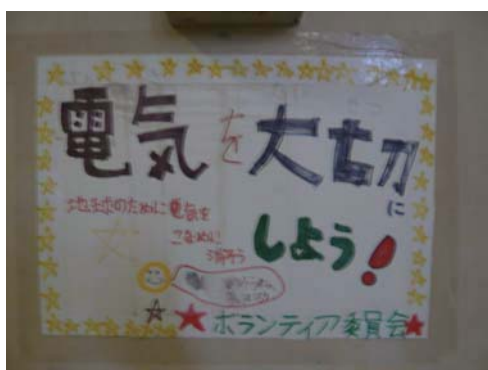 電気を大切に
しよう!
地球のために電気を
こまめに
消そう
ボランティア委員会